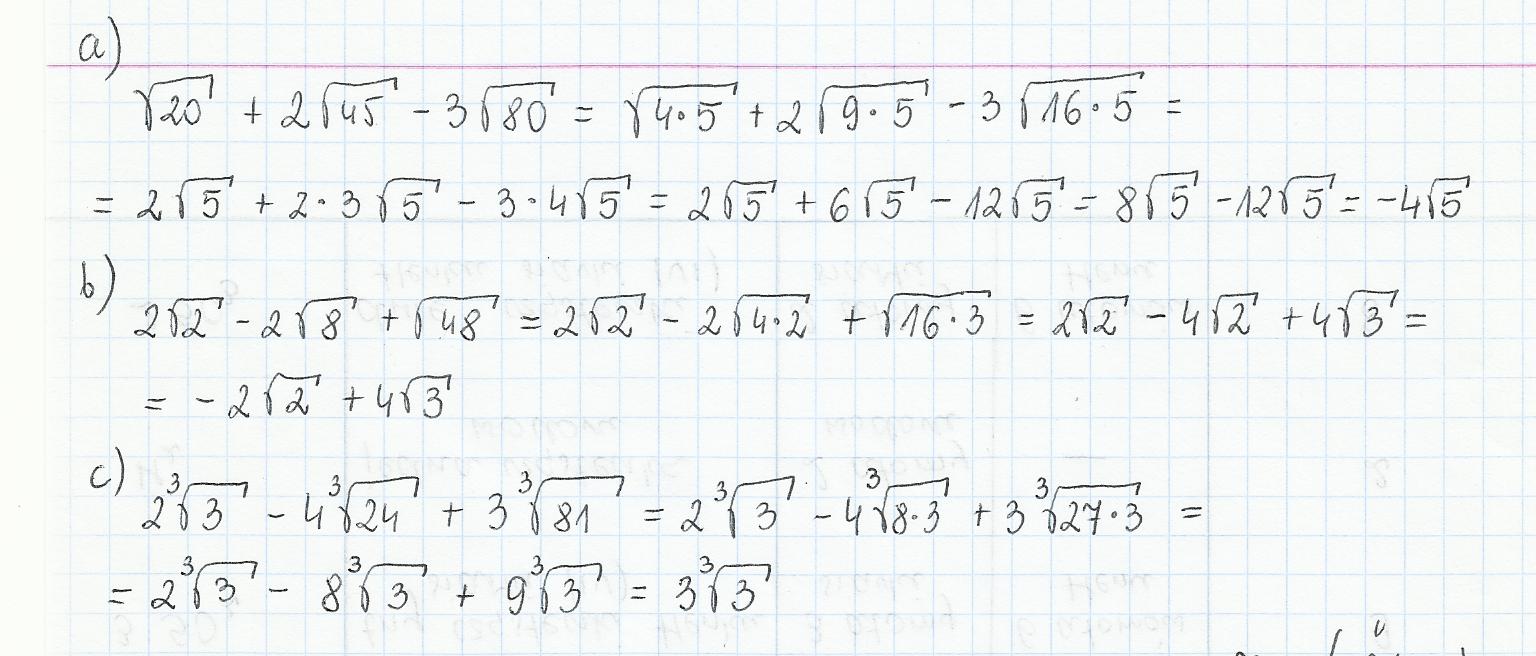 a)
√20 + 2√45 - 3√80 = √4·5 + 2√9·5 - 3√16·5 =
= 2√5 + 2·3√5 - 3·4√5 = 2√5 + 6√5 - 12√5 = 8√5 - 12√5 = -4√5
b)
2√2 - 2√8 + √48 = 2√2 - 2√4·2 + √16·3 = 2√2 - 4√2 + 4√3 =
= -2√2 + 4√3
c)
2∛3 - 4∛24 + 3∛81 = 2∛3 - 4∛8·3 + 3∛27·3 =
= 2∛3 - 8∛3 + 9∛3 = 3∛3